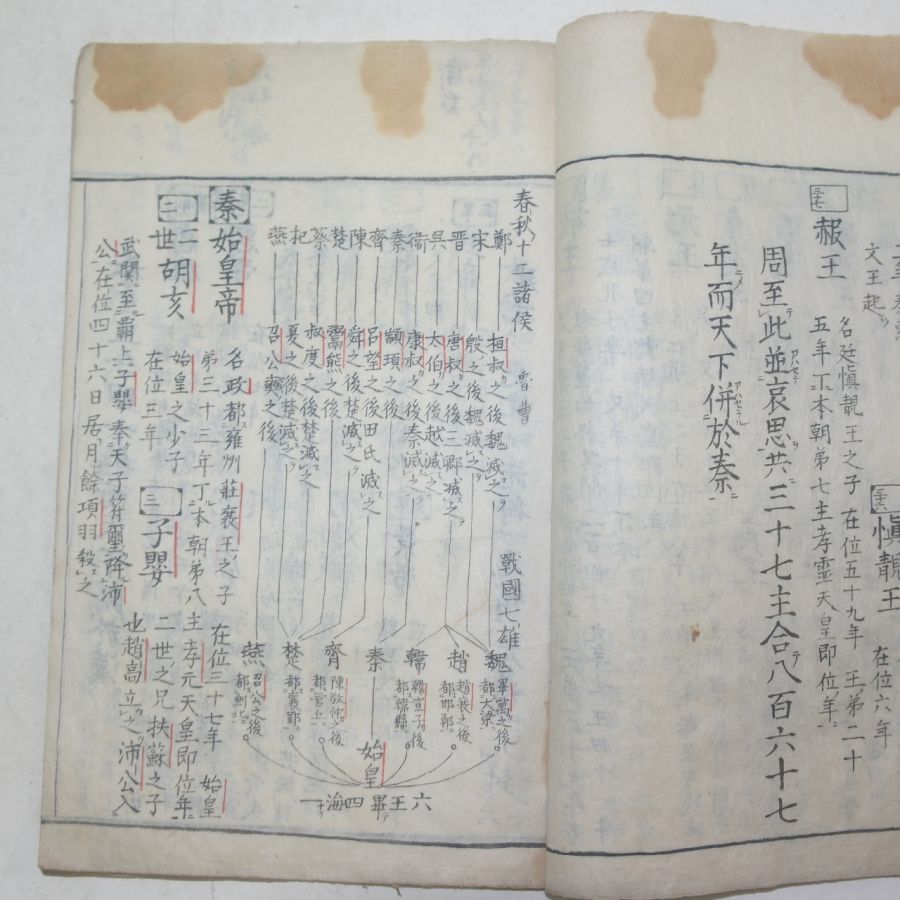 愼靚王
在位六年
三七
赧王
名延愼靚王之子 在位五十九年 王第二十
五年丁本朝第七主孝霊天皇即位年
周至此並哀思共三十七主合八百六十七
年而天下併於秦
春秋十二諸侯 魯 曹
鄭 桓叔之後魏滅之
宋 殷之後魏滅之
晋 唐叔之後三卿滅之
呉 太伯之後越滅之
衛 康叔之後秦滅之
秦 顓頊之後
齊 呂望之後田氏滅之
陳 舜之後楚滅之
楚 鬻熊之後
蔡 叔度之後楚滅之
杞 夏之後楚滅之
燕 召公奭之後
戰國七雄
魏 畢萬之後 都大梁
趙 趙衰之後 都邯鄲
韓 韓宣子後
秦
齊 陳敬仲之後 都營丘
楚 都襄郢
燕 召公之後 都薊北
始皇
六王畢四海一
秦 始皇帝
名政都雍州莊襄王之子 在位三十七年 始皇
第三十三年丁本朝第八主孝元天皇即位年
二 二世胡亥
始皇之少子
在位三年
三 子嬰
二世之兄扶蘇之子
也趙高立之沛公入
武關至覇上子嬰奉天子符璽降沛
公在位四十六日居月餘項羽殺之